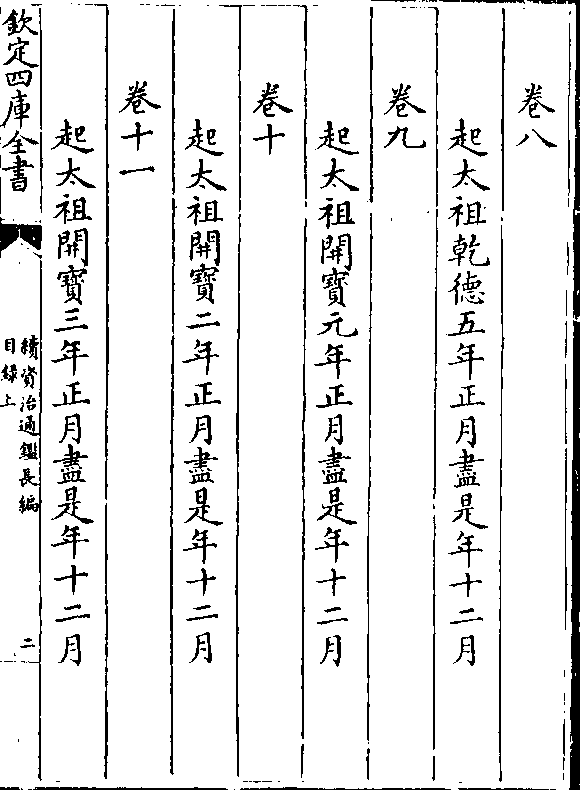 卷八
起太祖乾德五年正月盡是年十二月
卷九
起太祖開寶元年正月盡是年十二月
卷十
起太祖開寶二年正月盡是年十二月
卷十一
起太祖開寶三年正月盡是年十二月
欽定四庫全書
續資治通鑑長編
目録上
二